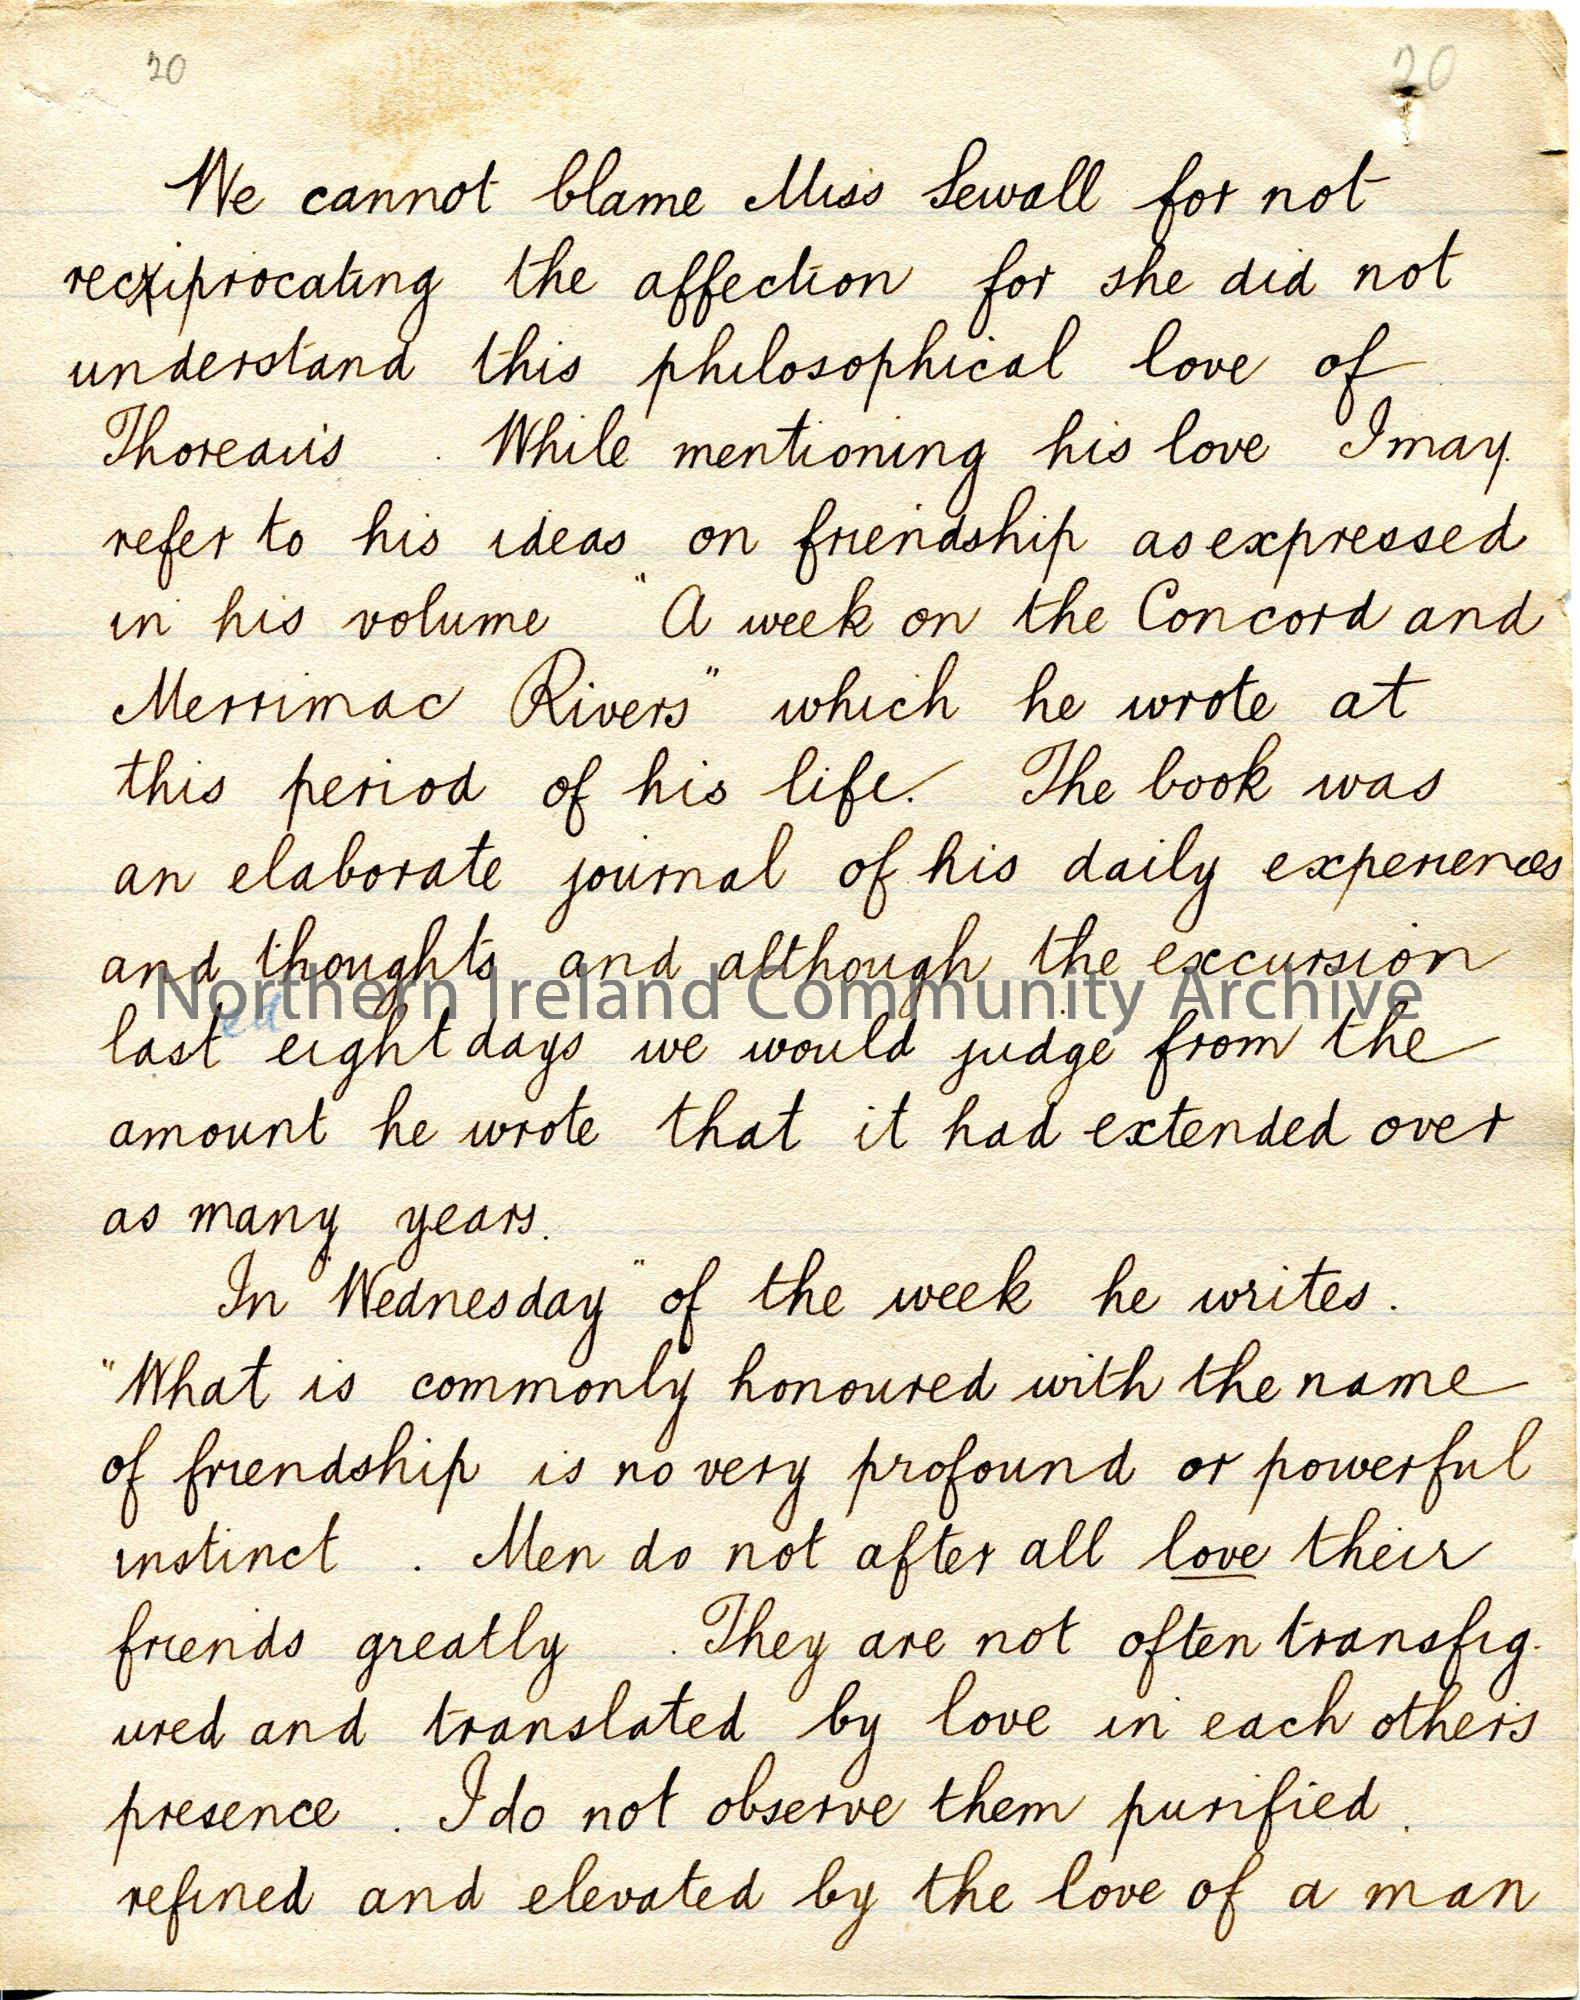 20 20
We cannot blame Miss Sewall for not
reciprocating the affection for she did not
understand this philosophical love of
Thoreau's . While mentioning his love I may
refer to his ideas on friendship as expressed
in his volume "A week on the Concord and
Merrimac Rivers" which he wrote at
this period of his life. The book was
an elaborate journal of his daily experiences
and thoughts and although the excursion
Northern Ireland Community Archive
lasted eight days we would judge from the
amount he wrote that it had extended over
as many years.
In "Wednesday" of the week he writes.
"What is commonly honoured with the name
of friendship is no very profound or powerful
instinct . Men do not after all love their
friends greatly . They are not often transfig-
ured and translated by love in each others
presence . I do not observe them purified .
refined and elevated by the love of a man